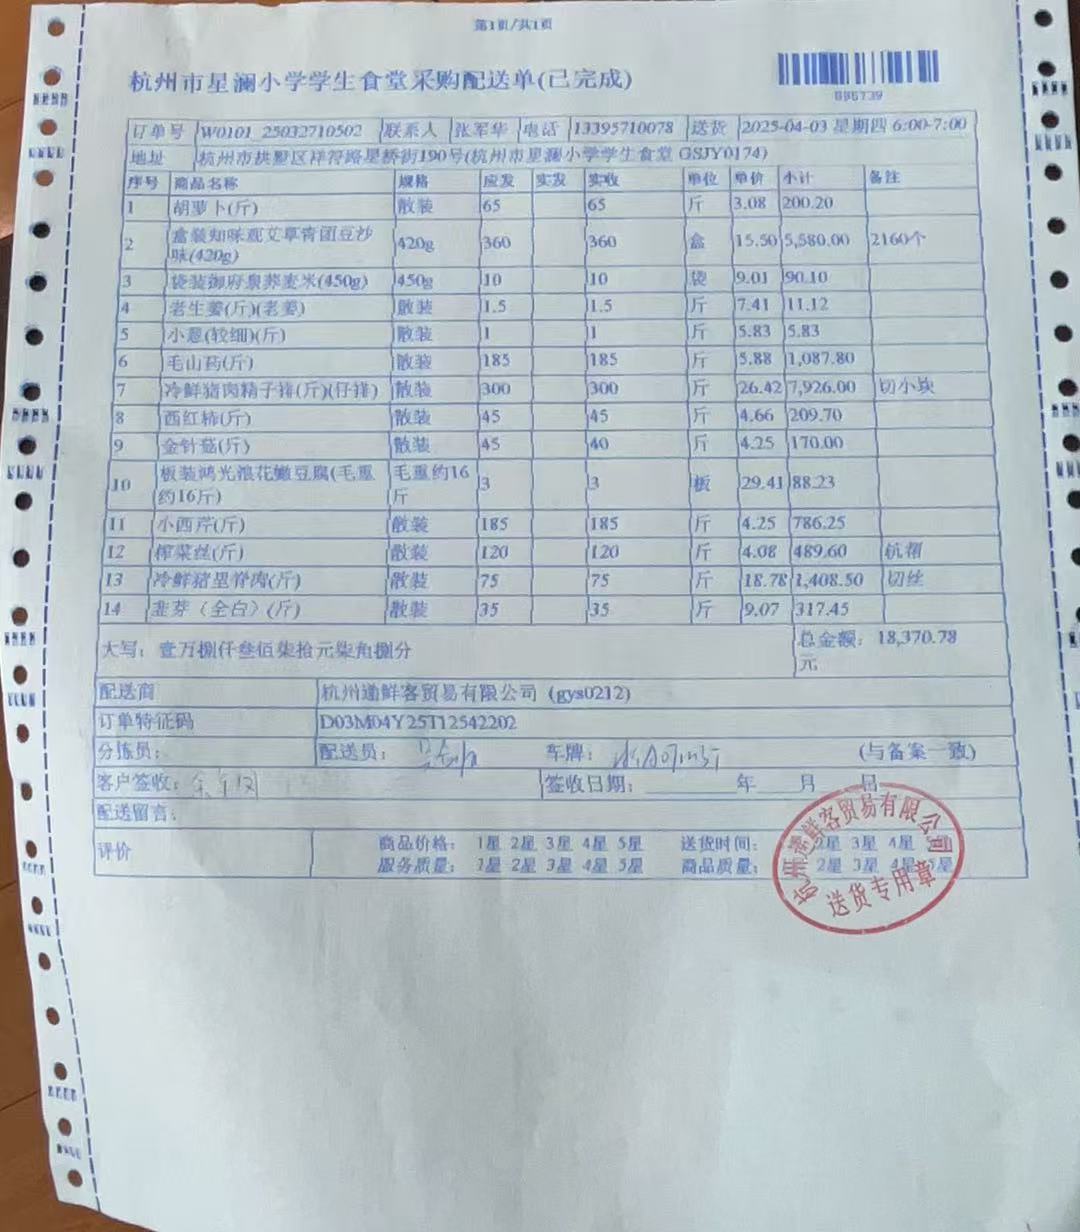 第1页/共1页
杭州市星澜小学学生食堂采购配送单(已完成)
订单号 W0101_25032710502 联系人 张军华 电话 13395710078 送货 2025-04-03 星期四 6:00-7:00
地址 杭州市拱墅区祥符路星桥街190号(杭州市星澜小学学生食堂 GSJY0174)
序号 商品名称 规格 应发 实发 实收 单位 单价 小计 备注
1 胡萝卜(斤) 散装 65 65 斤 3.08 200.20
2 盒装知味观艾草青团豆沙味(420g) 420g 360 360 盒 15.50 5,580.00 2160个
3 袋装御府泉荞麦米(450g) 450g 10 10 袋 9.01 90.10
4 老生姜(斤)(老姜) 散装 1.5 1.5 斤 7.41 11.12
5 小葱(较细)(斤) 散装 1 1 斤 5.83 5.83
6 毛山药(斤) 散装 185 185 斤 5.88 1,087.80
7 冷鲜猪肉精子排(斤)(仔排) 散装 300 300 斤 26.42 7,926.00 切小块
8 西红柿(斤) 散装 45 45 斤 4.66 209.70
9 金针菇(斤) 散装 45 40 斤 4.25 170.00
10 板装鸿光浪花嫩豆腐(毛重约16斤) 毛重约16斤 3 3 板 29.41 88.23
11 小西芹(斤) 散装 185 185 斤 4.25 786.25
12 榨菜丝(斤) 散装 120 120 斤 4.08 489.60 杭帮
13 冷鲜猪里脊肉(斤) 散装 75 75 斤 18.78 1,408.50 切丝
14 韭芽（全白）(斤) 散装 35 35 斤 9.07 317.45
大写：壹万捌仟叁佰柒拾元柒角捌分 总金额：18,370.78元
配送商 杭州递鲜客贸易有限公司 (gys0212)
订单特征码 D03M04Y25T12542202
分拣员： 配送员： 车牌： (与备案一致)
客户签收： 签收日期： 年 月 日
配送留言：
评价 商品价格： 1星 2星 3星 4星 5星 送货时间： 2星 3星 4星
服务质量： 1星 2星 3星 4星 5星 商品质量： 2星 3星 4星 5星
送货专用章